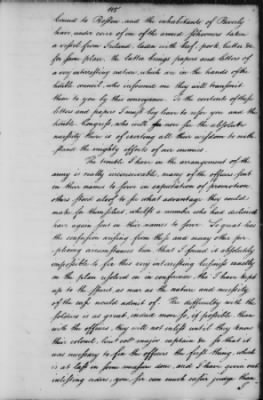 105
bound to Boston, and the inhabitants of Beverly
have, under cover of one of the armed schooners taken
a vessel from Ireland, laden with beef, pork, butter &c
for same place, the latter brings papers and letters of
a very interesting nature, which are in the hands of the
honble council, who informed me they will transmit
them to you by this conveyance. To the contents of these
letters and papers I must beg leave to refer you and the
honble Congress, who will now see the absolute
necessity there is of exerting all their wisdom to with
stand the mighty efforts of our enemies.
The trouble I have in the arrangement of the
army is really inconceivable, many of the officers sent
in their names to serve in expectation of promotion
others stood aloof to see what advantage they could
make for themselves, whilst a number who had declined
have again sent in their names to serve. So great has
the confusion arising from these and many other per
plexing circumstances been that I found it absolutely
impossible to fix this very interesting business exactly
on the plan resolved on in conference, tho' I have kept
up to the spirit as near as the nature and necessity
of the case would admit of. The difficulty with the
soldiers is as great, indeed more so, if possible than
with the officers, they will not inlist until they know
their colonel, lieut colo major captain &c so that it
was necessary to fix the officers the first thing, which
is at last in some measure done, and I have given out
inlisting orders, you sir can much easier judge than